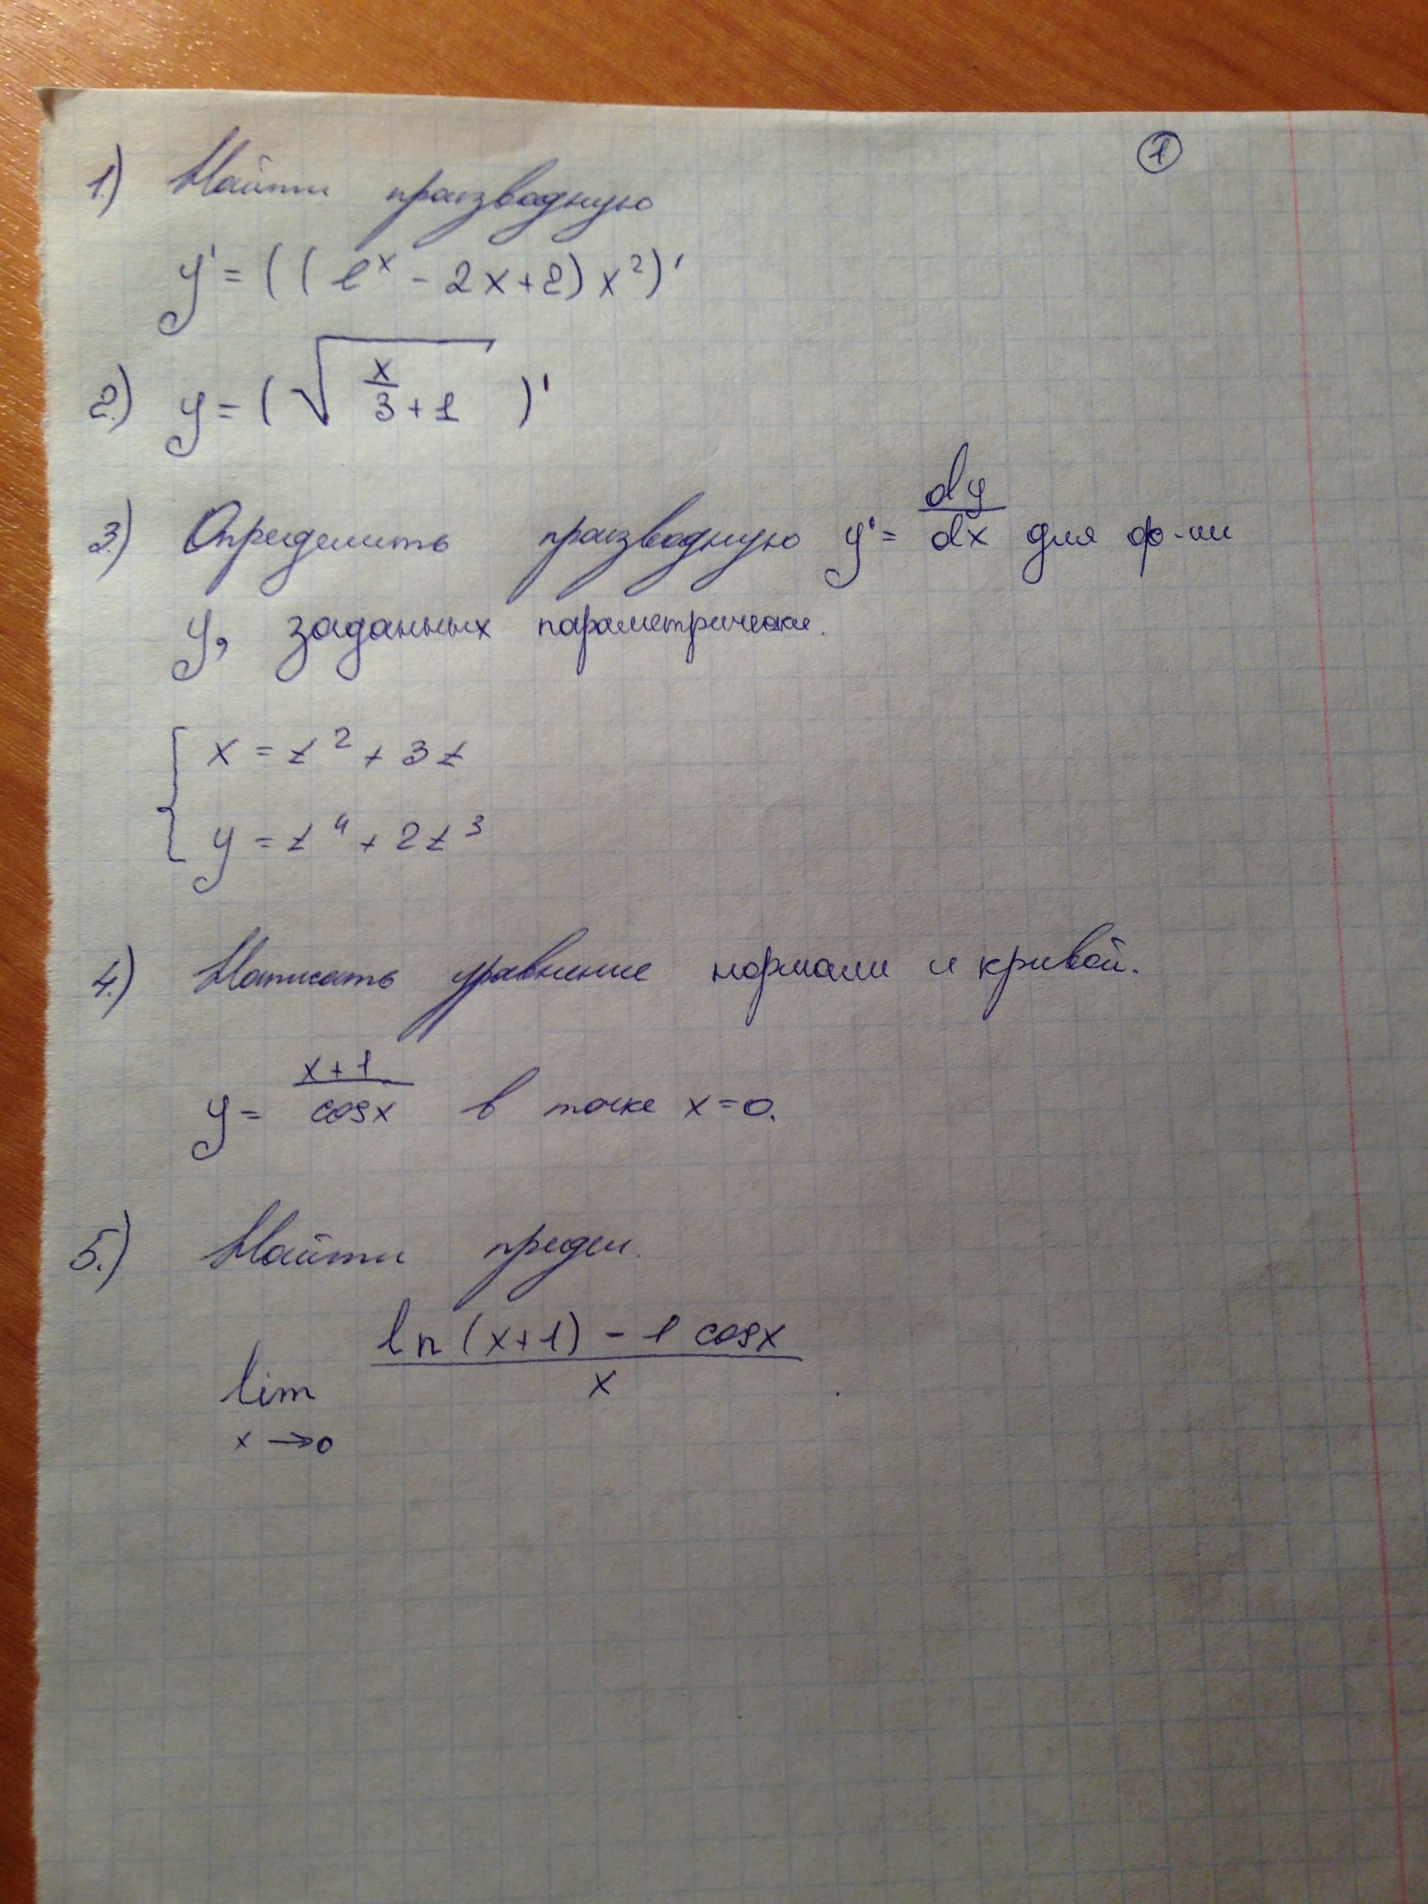 ①
1.) Найти производную
y' = ((e^x - 2x + 2) x^2)'
2.) y = (√(x/3 + 1))'
3.) Определить производную y' = dy/dx для ф-ии
y, заданных параметрически.
{ x = t^2 + 3t
y = t^4 + 2t^3
4.) Написать уравнение нормали и кривой.
y = (x+1)/cosx в точке x=0.
5.) Найти предел.
lim x→0 (ln(x+1) - 1 cosx)/x.